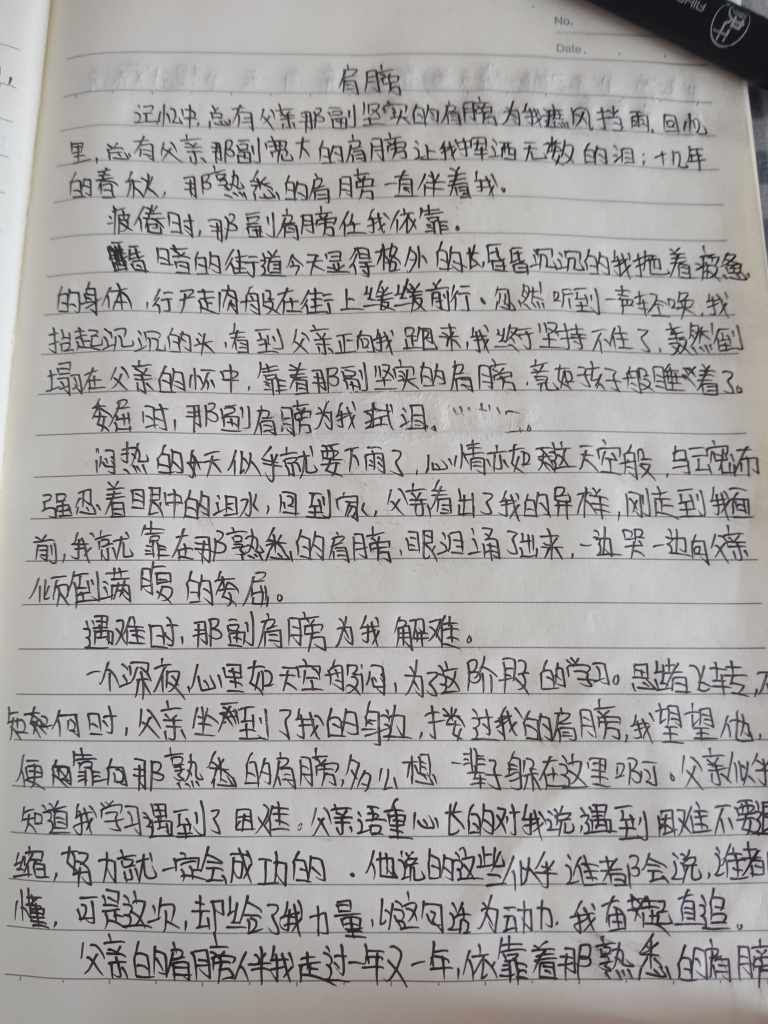 No.
Date.
肩膀
记忆中,总有父亲那副坚实的肩膀为我遮风挡雨,回忆
里,总有父亲那副宽大的肩膀让我挥洒无数的泪;十几年
的春秋,那熟悉的肩膀一直伴着我。
疲倦时,那副肩膀任我依靠。
昏暗的街道今天显得格外的长昏昏沉沉的我拖着疲惫
的身体,行尸走肉般在街上缓缓前行。忽然听到一声轻唤,我
抬起沉沉的头,看到父亲正向我跑来,我终于坚持不住了,轰然倒
塌在父亲的怀中,靠着那副坚实的肩膀,竟如孩子般睡着了。
委屈时,那副肩膀为我拭泪。
闷热的天似乎就要下雨了,心情亦如这天空般,乌云密布
强忍着眼中的泪水,回到家,父亲看出了我的异样,刚走到我面
前,我就靠在那熟悉的肩膀,眼泪涌了出来,一边哭一边向父亲
倾倒满腹的委屈。
遇难时,那副肩膀为我解难。
一个深夜,心里如天空般闷,为了这阶段的学习。思绪飞转,不
知何时,父亲坐到了我的身边,搂过我的肩膀,我望望他,
便靠向那熟悉的肩膀,多么想一辈子躲在这里啊。父亲似乎
知道我学习遇到了困难。父亲语重心长的对我说,遇到困难不要退
缩,努力就一定会成功的.他说的这些似乎谁都会说,谁都
懂,可是这次,却给了我力量,以这句话为动力,我奋起直追。
父亲的肩膀伴我走过一年又一年,依靠着那熟悉的肩膀